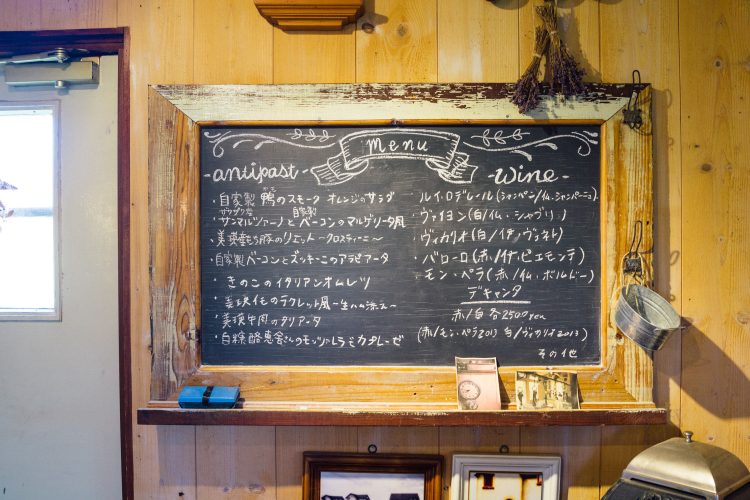 Menu
-antipast-
・自家製 鴨のスモーク オレンジのサラダ
・サンマルツァーノと 自家製 ベーコンのマルゲリータ風
・美瑛産もち豚のリエット 〜クロスティーニ〜
・自家製ベーコンとズッキーニのアラビアータ
・きのこのイタリアンオムレツ
のラクレット風 〜生ハム添え〜
・美瑛牛肉のタリアータ
・白糠酪恵舎さんのモッツァレラ
カプレーゼ
-wine-
ルイ・ロデレール(シャンパン/仏・シャンパーニュ)
・ヴィヨン(白/仏・シャブリ)
・ヴィカリオ(白/伊・ヴェネト)
・バローロ(赤/伊・ピエモンテ)
モン・ペラ(赤/仏・ボルドー)
デキャンタ
赤/白 各2500yen
(赤/モン・ペラ2013 白/ヴィカリオ2013)
その他